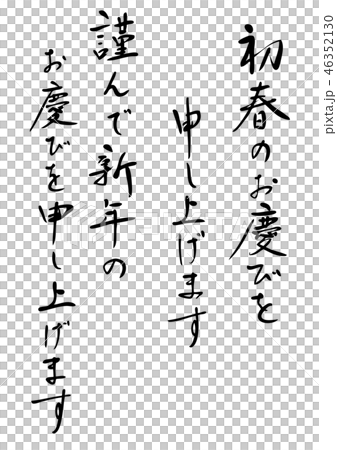 初春のお慶びを
申し上げます
謹んで新年の
お慶びを申し上げます
pixta.jp - 46352130